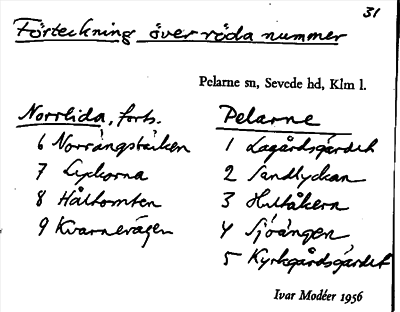 31
Förteckning över röda nummer
Pelarne sn, Sevede hd, Klm l.
Norrlida, forts.
6 Norrängsbacken
7 Lyckorna
8 Håltomten
9 Kvarnevägen
Pelarne
1 Lagårdsgärdet
2 Sandlyckan
3 Hultåkern
4 Sjöängen
5 Kyrkgårdsgärdet
Ivar Modéer 1956